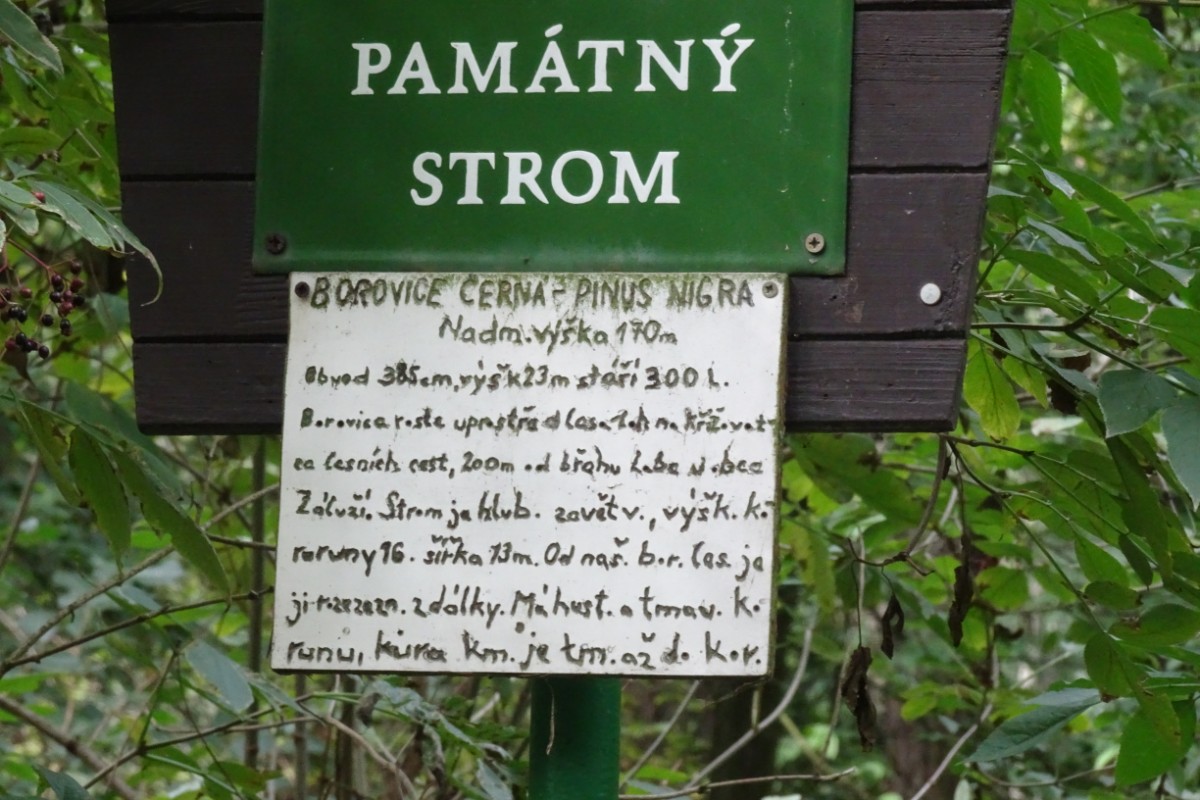 PAMÁTNÝ
STROM
BOROVICE ČERNÁ - PINUS NIGRA
Nadm. výška 170m
Obvod 385cm, výšk 23m stáří 300 l.
Borovica roste uprostřed les. na křižovat-
ca lesních cest, 200m od břahu Labe u obce
Záluží. Strom ja hlub. zavětv., výšk. ko-
roruny 16. šířka 13m. Od naš. bor. las. ja
ji rozezezn. z dálky. Má hust. a tmav. ko-
runu, kůra km. je tm. až do kor.